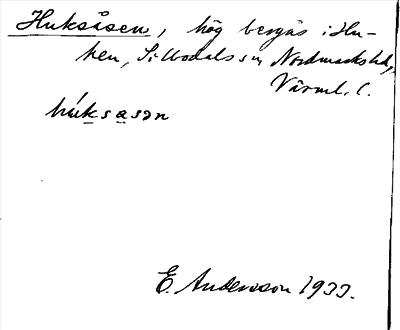 Huksåsen, hög bergås i Hu-
ken, Silbodals sn, Nordmarks hd,
Värml. l.
húksasən
E. Andersson 1933.